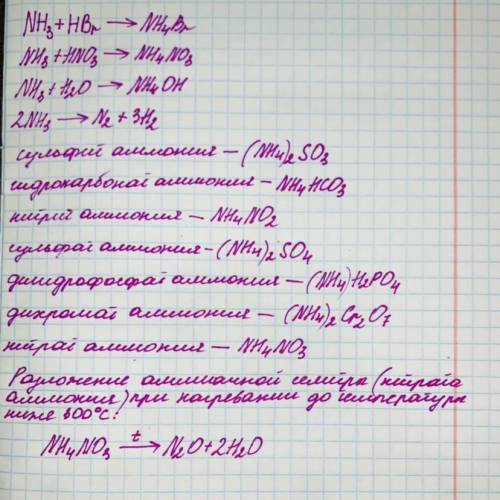 NH3 + HBr → NH4Br
NH3 + HNO3 → NH4NO3
NH3 + H2O → NH4OH
2NH3 → N2 + 3H2
сульфит аммония – (NH4)2SO3
гидрокарбонат аммония – NH4HCO3
нитрит аммония – NH4NO2
сульфат аммония – (NH4)2SO4
дигидрофосфат аммония – (NH4)H2PO4
дихромат аммония – (NH4)2Cr2O7
нитрат аммония – NH4NO3
Разложение аммиачной селитры (нитрата
аммония) при нагревании до температуры
ниже 300°C:
NH4NO3 t→ N2O + 2H2O